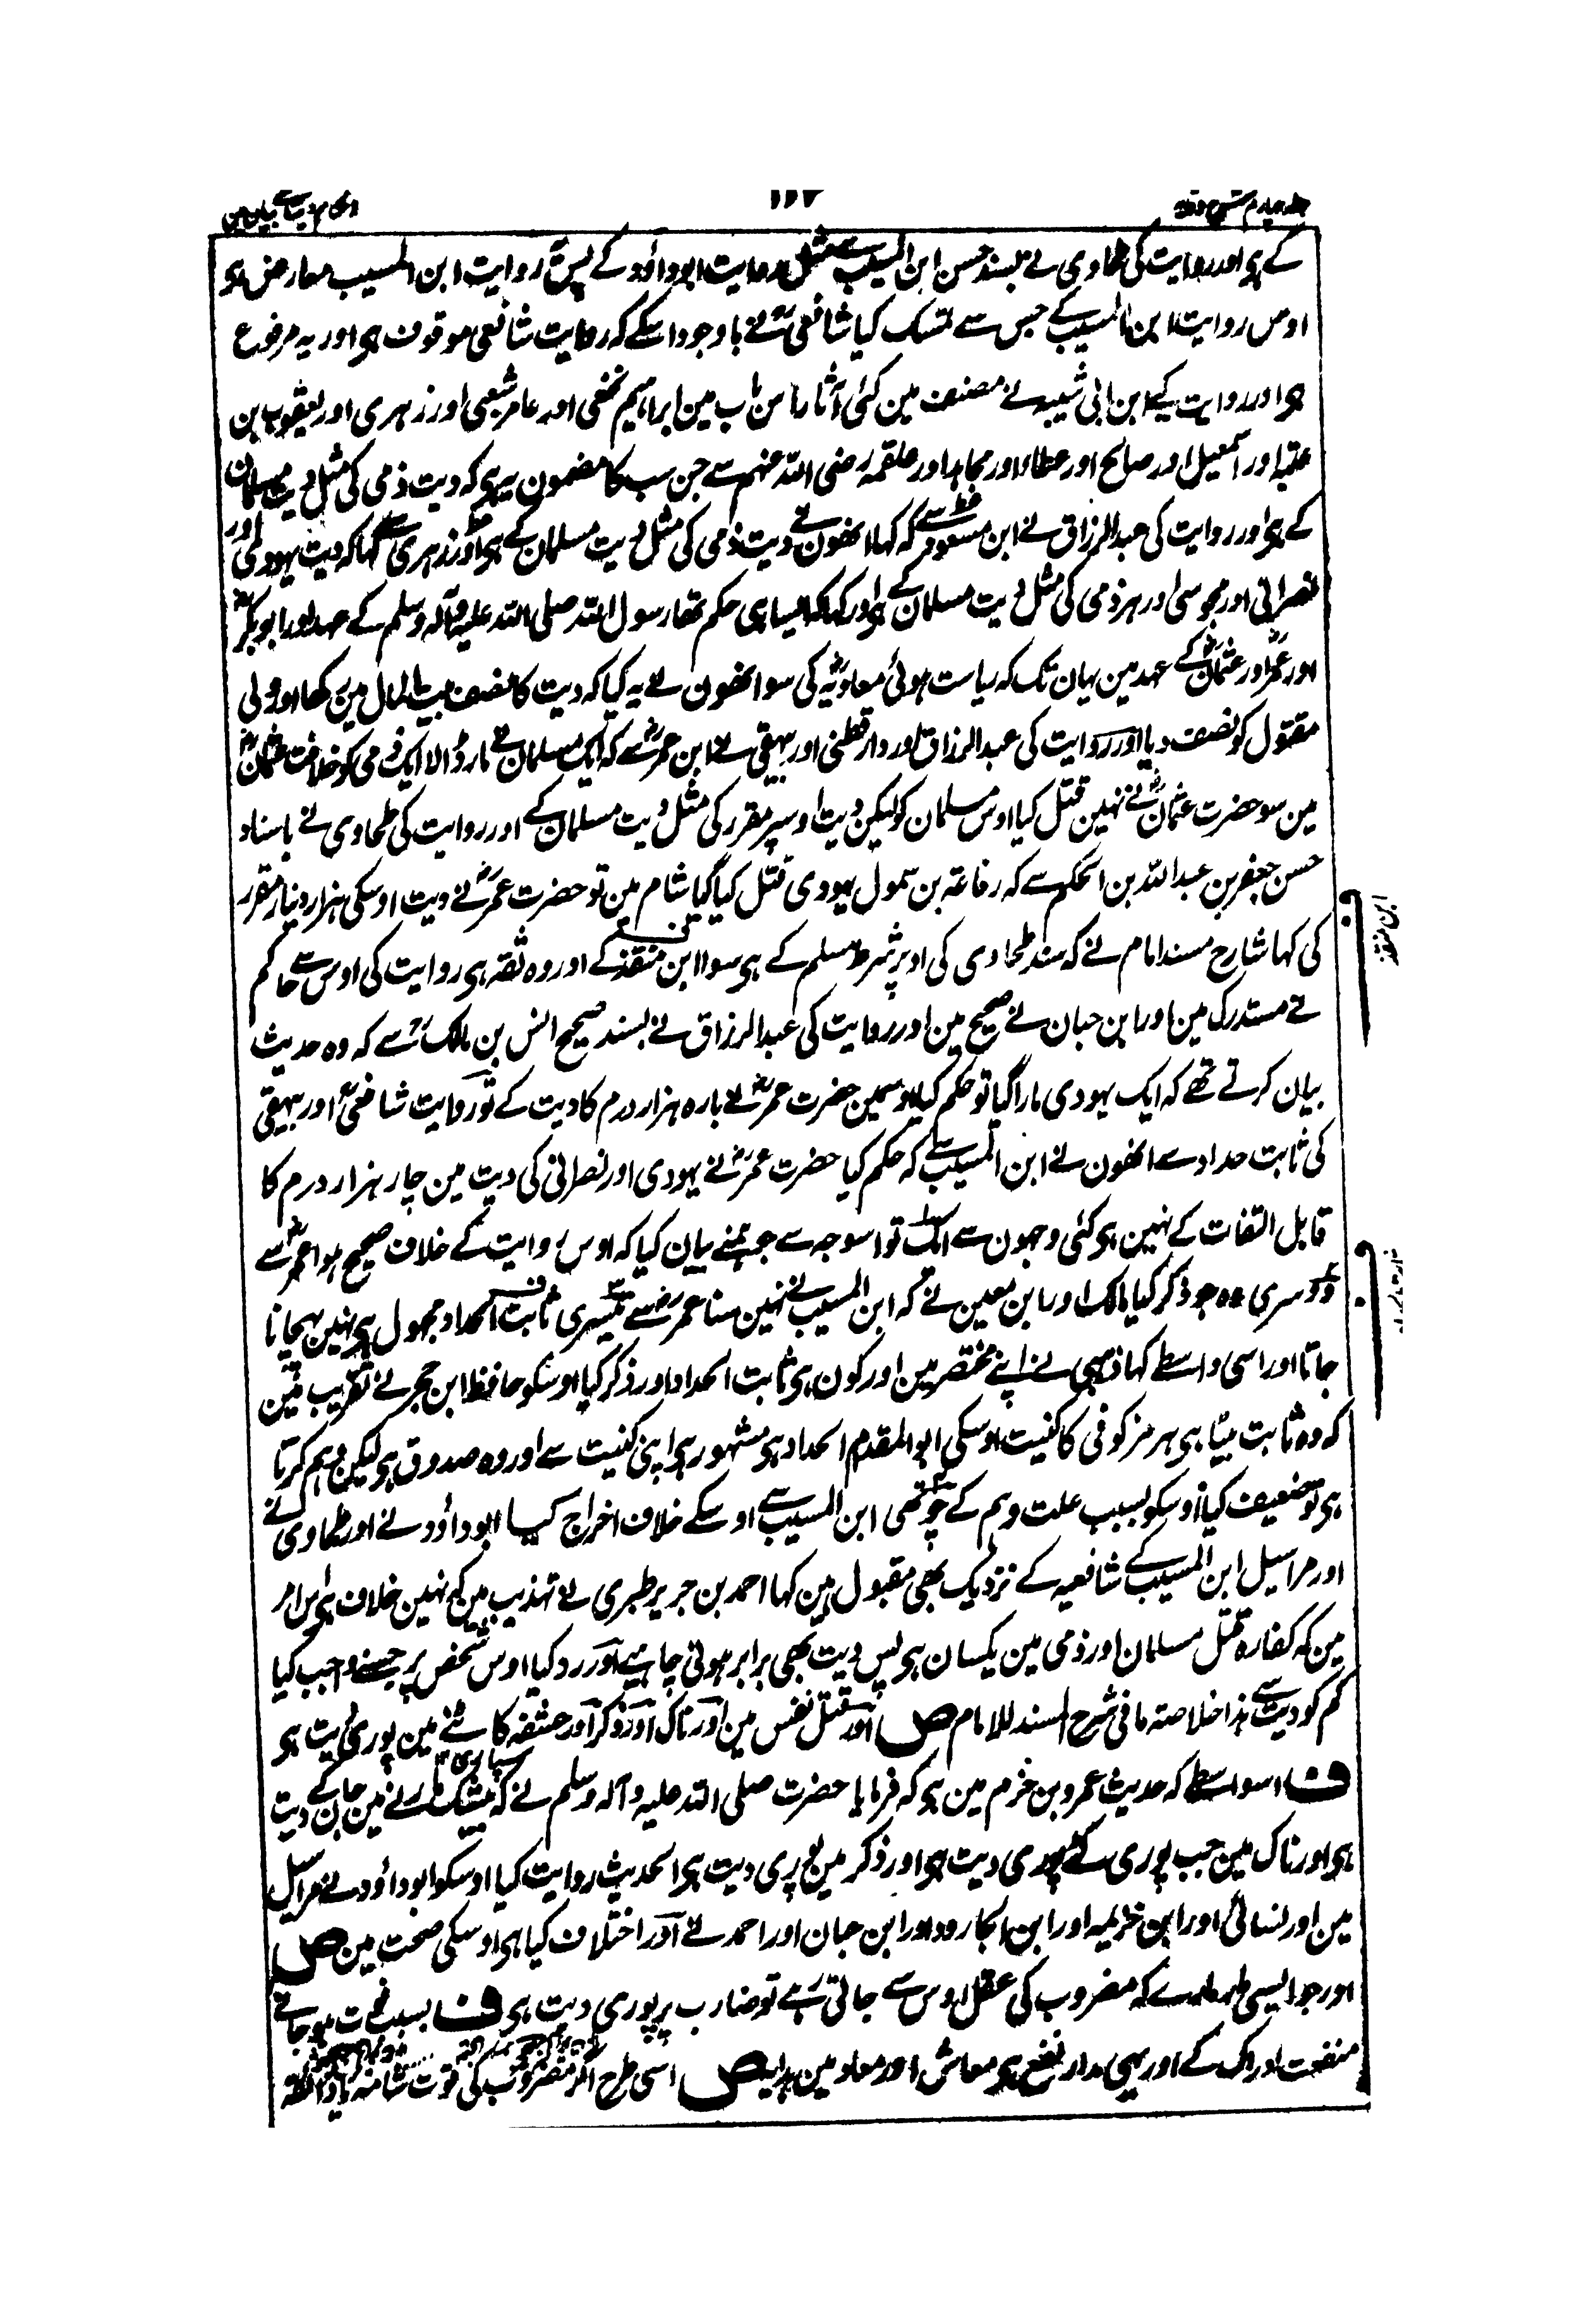 جلد چہارم شرح وقایہ ۱۱۲ احکام دیات کے بیان مین
کے ہی اور روایت کی طحاوی نے بسند حسن ابن المسیب سے مثل روایت ابو داؤد کے پس روایت ابن المسیب معارض ہی
اوس روایت ابن المسیب کے جس سے تمسک کیا شافعیؒ نے باوجود اسکے کہ روایت شافعی موقوف ہی اور یہ مرفوع
ہی اور روایت کیے ابن ابی شیبہ نے مصنف مین کئی آثار اس باب مین ابراہیم نخعی اور عامر شعبی اور زہری اور یعقوب بن
عتبہ اور اسمعیل اور صالح اور عطاء اور مجاہد اور علقمہ رضی اللہ عنہم سے جن سب کا مضمون یہ ہی کہ دیت ذمی کی مثل دیت مسلمان
کے ہی اور روایت کی عبد الرزاق نے ابن مسعودؓ سے کہ کہا انھون نے دیت ذمی کی مثل دیت مسلمان کے ہی اور زہری سے کہا کہ دیت یہودی اور
نصرانی اور مجوسی اور ہر ذمی کی مثل دیت مسلمان کے ہی اور کہا کہ ایسا ہی حکم تھا رسول اللہ صلی اللہ علیہ وآلہ وسلم کے عہد اور ابو بکرؓ
اور عمرؓ اور عثمانؓ کے عہد مین یہان تک کہ ریاست ہوئی معاویہؓ کی سو انھون نے یہ کیا کہ دیت کا نصف بیت المال مین رکھا اور ولی
مقتول کو نصف دیا اور روایت کی عبد الرزاق اور دارقطنی اور بیہقی نے ابن عمرؓ سے کہ ایک مسلمان نے مار ڈالا ایک ذمی کو خلافت عثمانؓ
مین سو حضرت عثمانؓ نے نہین قتل کیا اوس مسلمان کو لیکن دیت اوسپر مقرر کی مثل دیت مسلمان کے اور روایت کی طحاوی نے باسناد
حسن جعفر بن عبد اللہ بن الحکم سے کہ رفاعہ بن سمول یہودی قتل کیا گیا شام مین تو حضرت عمرؓ نے دیت اوسکی ہزار دینار مقرر
کی کہا شارح مسند امام نے کہ سند طحاوی کی اوپر شرط مسلم کے ہی سوا ابن منقذ کے اور وہ ثقہ ہی روایت کی اوس سے حاکم
نے مستدرک مین اور ابن حبان نے صحیح مین اور روایت کی عبد الرزاق نے بسند صحیح انس بن مالکؓ سے کہ وہ حدیث
بیان کرتے تھے کہ ایک یہودی مارا گیا تو حکم کیا اوسمین حضرت عمرؓ نے بارہ ہزار درم کا دیت کے تو روایت شافعیؒ اور بیہقی
کی ثابت حداد سے انھون نے ابن المسیب سے کہ حکم کیا حضرت عمرؓ نے یہودی اور نصرانی کی دیت مین چار ہزار درم کا
قابل التفات کے نہین ہی کئی وجہون سے ایک تو اسوجہ سے جو ہمنے بیان کیا کہ اوس روایت کے خلاف صحیح ہوا عمرؓ سے
دوسری وہ جو ذکر کیا مالک اور ابن معین نے کہ ابن المسیب نے نہین سنا عمرؓ سے تیسری ثابت الحداد مجہول ہی نہین پہچانا
جاتا اور اسی واسطے کہا ذہبی نے اپنے مختصر مین اور کون ہی ثابت الحداد اور ذکر کیا اوسکو حافظ ابن حجر نے تقریب مین
کہ وہ ثابت بیٹا ہی ہرمز کوفی کا کنیت اوسکی ابو المقدم الحداد ہی مشہور ہی اپنی کنیت سے اور وہ صدوق ہی لیکن وہم کرتا
ہی تو ضعیف کیا اوسکو بسبب علت وہم کے چوتھی ابن المسیب سے اوسکے خلاف اخراج کیا ابو داؤد نے اور طحاوی نے
اور مراسیل ابن المسیب کے شافعیہ کے نزدیک بھی مقبول ہین کہا احمد بن جریر طبری نے تہذیب مین کہ نہین خلاف ہی اس امر
مین کہ کفارہ قتل مسلمان اور ذمی مین یکسان ہی پس دیت بھی برابر ہونی چاہیے اور رد کیا اوس شخص پر جسنے واجب کیا
کم کو دیت سے ہذا خلاصۃ ما فی شرح المسند للامام ص اور قتل نفس مین اور ناک اور ذکر اور حشفہ کاٹنے مین پوری دیت ہی
ف اسواسطے کہ حدیث عمرو بن حزم مین ہی کہ فرمایا حضرت صلی اللہ علیہ وآلہ وسلم نے کہ بیشک مارنے مین جان کے دیت
ہی اور ناک مین جب پوری کٹے پوری دیت ہی اور ذکر مین پوری دیت ہی الحدیث روایت کیا اوسکو ابو داؤد نے مراسیل
مین اور نسائی اور ابن خزیمہ اور ابن الجارود اور ابن حبان اور احمد نے اور اختلاف کیا ہی اوسکی صحت مین ص
اور جو ایسی مار مارے کہ مضروب کی عقل اوس سے جاتی رہے تو ضارب پر پوری دیت ہی ف بسبب فوت ہو جانے
منفعت ادراک کے اور یہی مدار نفع ہی معاش اور معاد مین ہدایہ ص اسی طرح اگر مضروب کی قوت شامہ یا ذائقہ
ابن منقذ